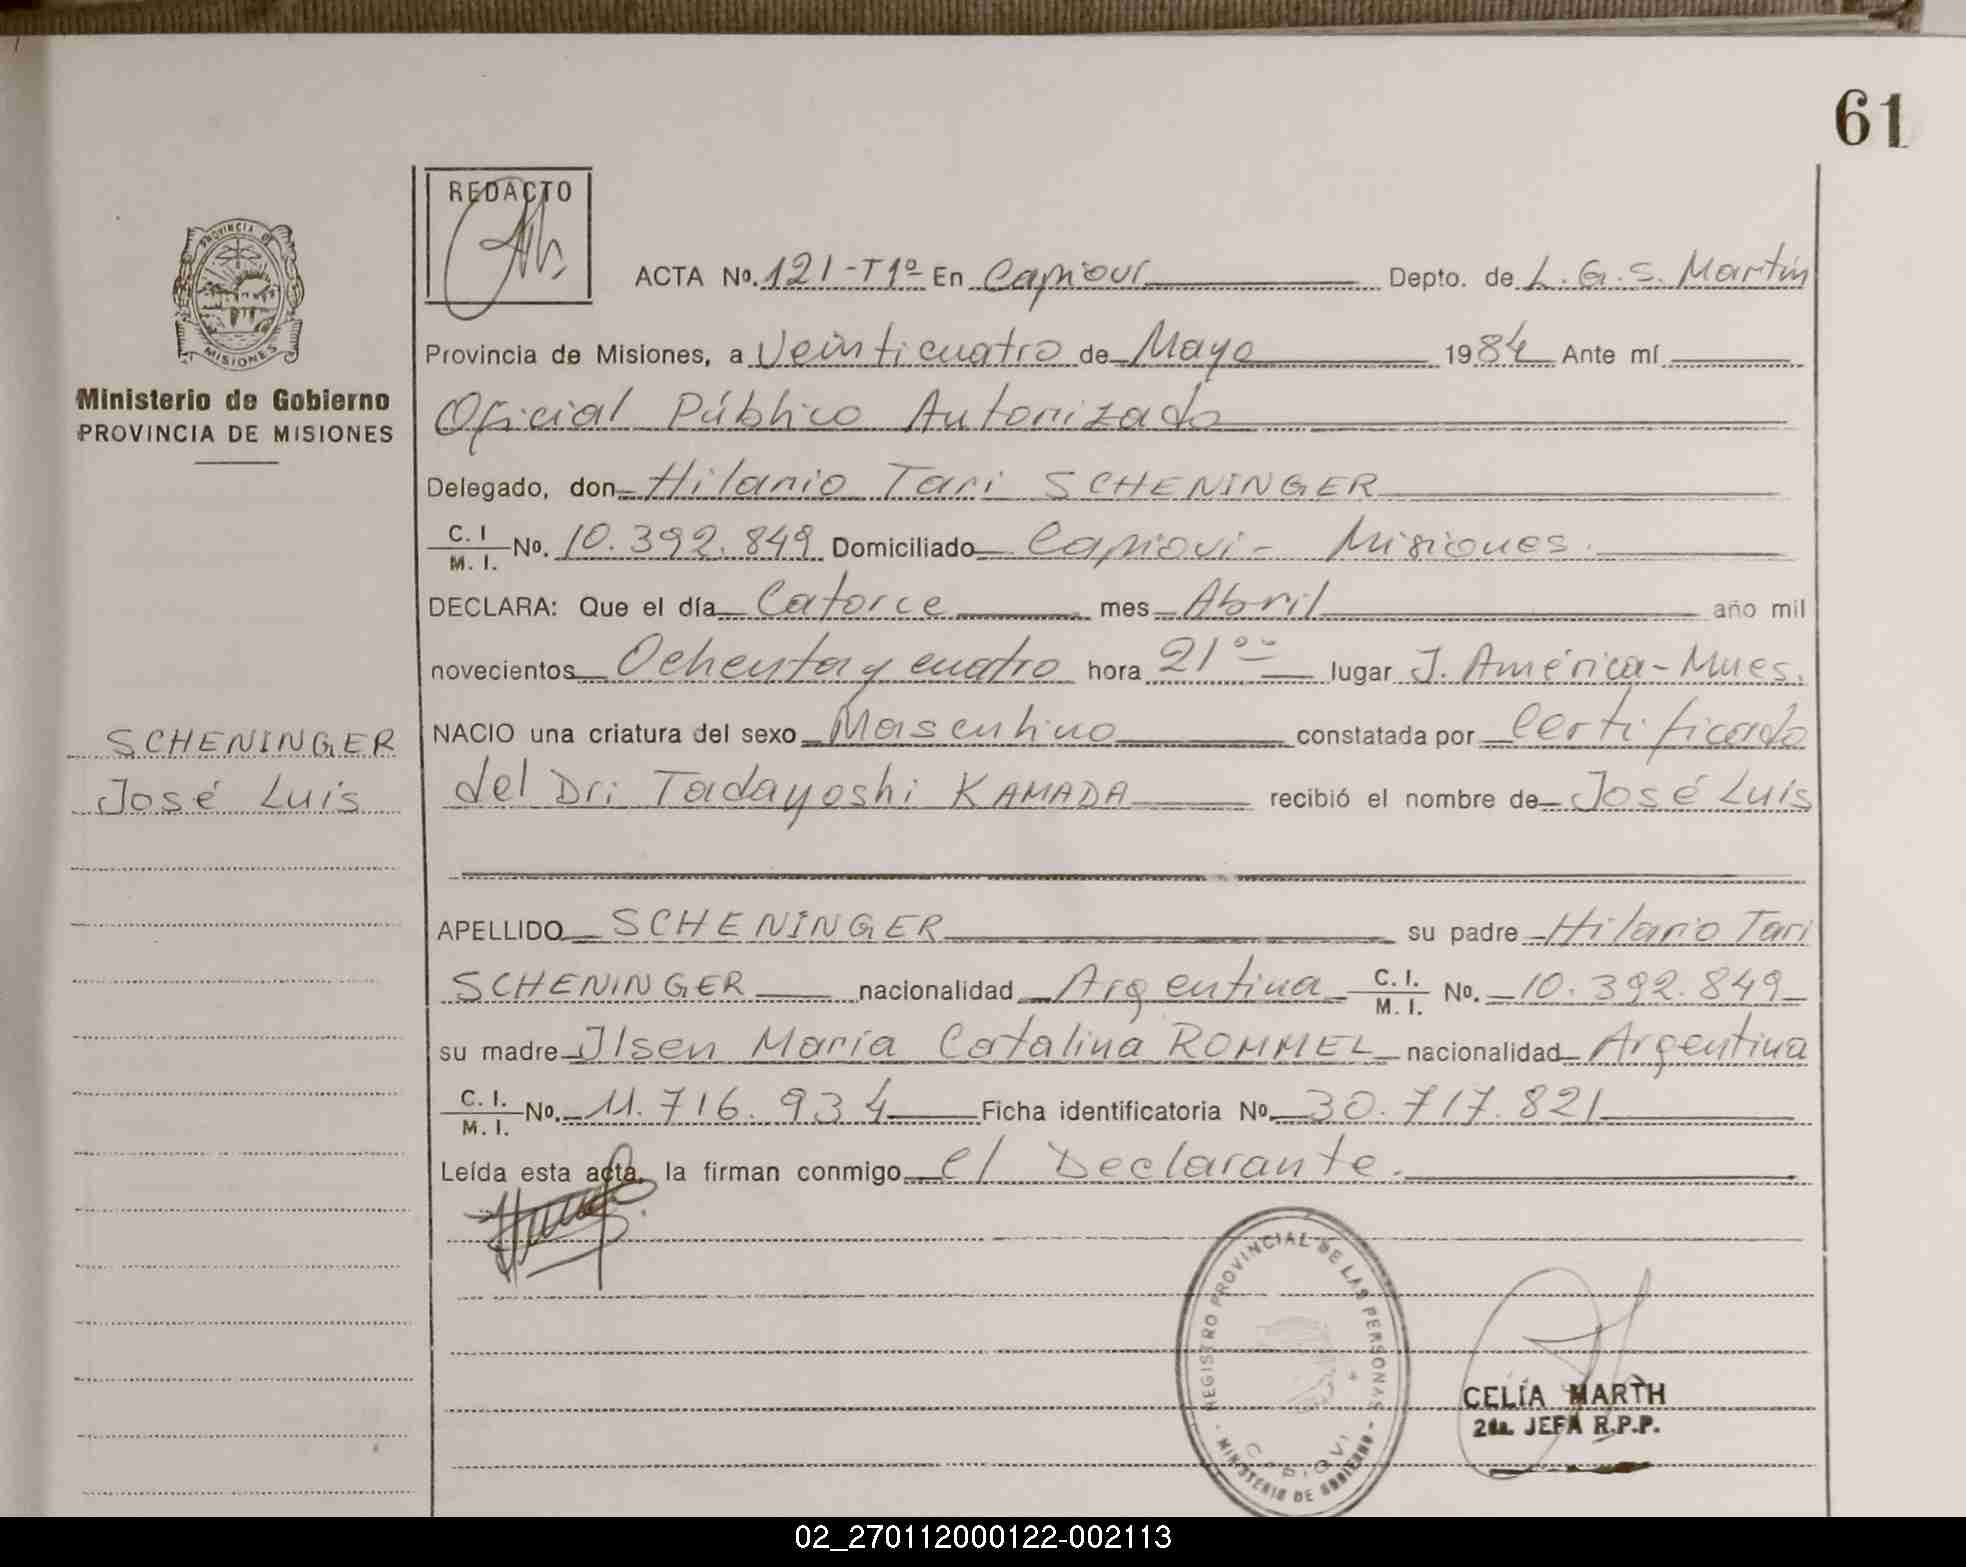 61
REDACTO
PROVINCIA DE
MISIONES
Ministerio de Gobierno
PROVINCIA DE MISIONES
ACTA No. 121-T1º En Capioví Depto. de L. G. S. Martín
Provincia de Misiones, a Veinticuatro de Mayo 1984 Ante mí
Oficial Público Autorizado
Delegado, don Hilario Tari SCHENINGER
C. I / M. I. No. 10.392.849 Domiciliado Capioví - Misiones.
DECLARA: Que el día Catorce mes Abril año mil
novecientos Ochenta y cuatro hora 21ºº lugar J. América - Mnes.
NACIO una criatura del sexo Masculino constatada por Certificado
SCHENINGER
José Luis
del Dr: Tadayoshi KAMADA recibió el nombre de José Luis
APELLIDO SCHENINGER su padre Hilario Tari
SCHENINGER nacionalidad Argentina C. I. / M. I. No. 10.392.849
su madre Ilsen María Catalina ROMMEL nacionalidad Argentina
C. I. / M. I. No. 11.716.934 Ficha identificatoria No. 30.717.821
Leída esta acta, la firman conmigo el Declarante.
REGISTRO PROVINCIAL DE LAS PERSONAS
CAPIOVI
MINISTERIO DE GOBIERNO
CELIA MARTH
2da. JEFA R.P.P.
02_270112000122-002113